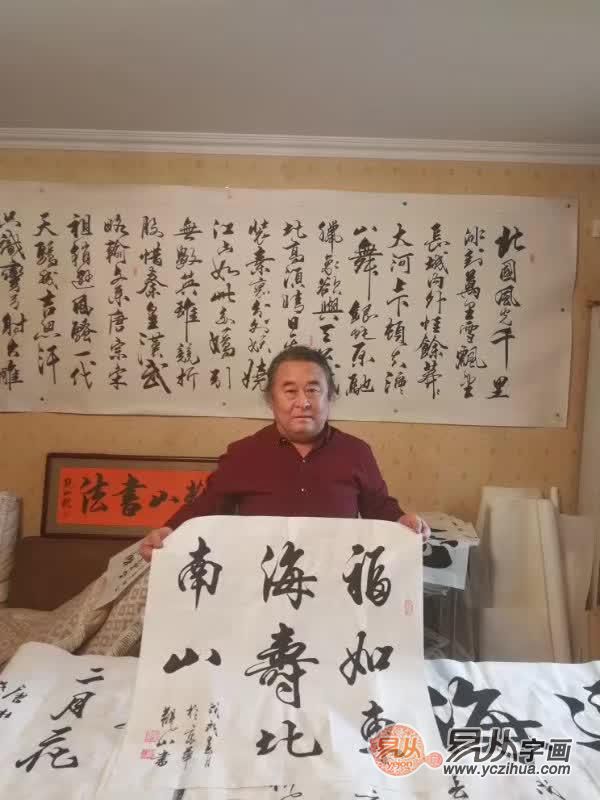 北國風光千里
冰封萬里雪飄望
長城內外惟餘莽莽
大河上下頓失滔
山舞銀蛇原馳
蠟象欲與天公試
比高須晴日
裝素裹分外妖嬈
江山如此多嬌引
無數英雄競折
腰惜秦皇漢武
略輸文采唐宗宋
祖稍遜風騷一代
天驕成吉思汗
只識彎弓射大雕
山書法
福如東
海壽比
南山
於京華
山書
二月花
海
易从字画
www.yczihua.com